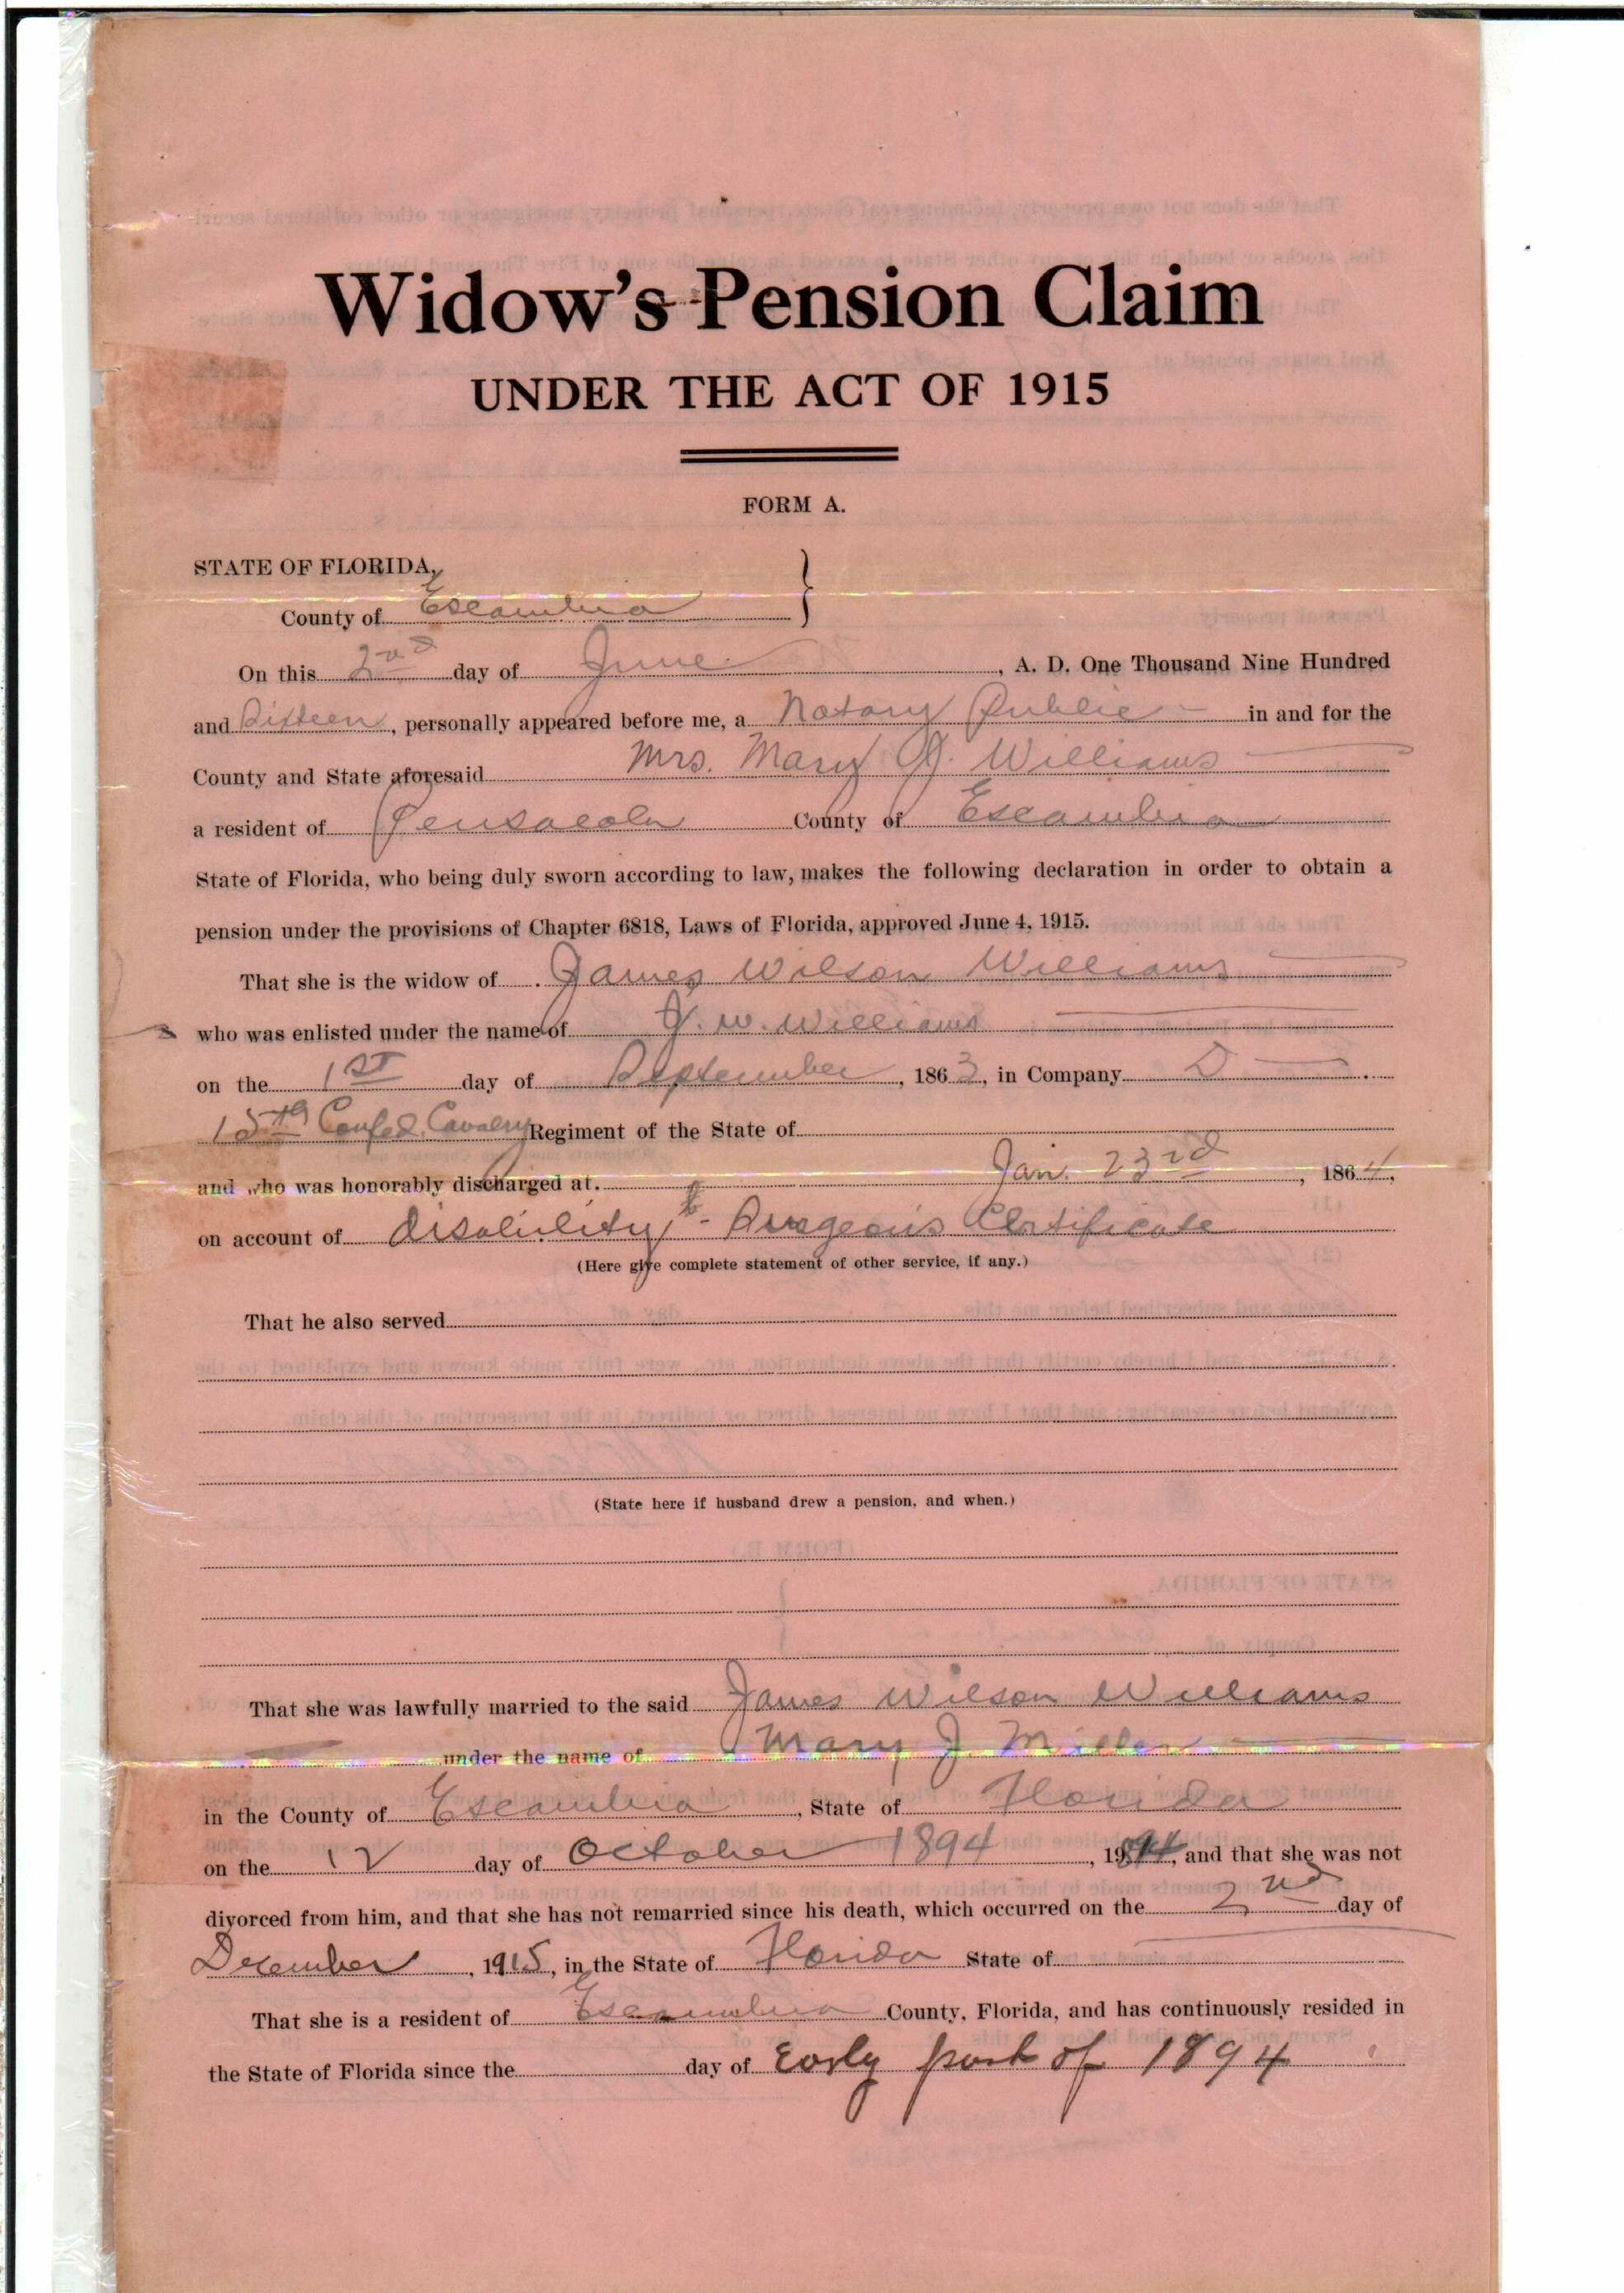 Widow's Pension Claim
UNDER THE ACT OF 1915
FORM A.
STATE OF FLORIDA,
County of Escambia }
On this 2nd day of June, A. D. One Thousand Nine Hundred
and Sixteen, personally appeared before me, a Notary Public - in and for the
County and State aforesaid Mrs. Mary J. Williams
a resident of Pensacola County of Escambia
State of Florida, who being duly sworn according to law, makes the following declaration in order to obtain a
pension under the provisions of Chapter 6818, Laws of Florida, approved June 4, 1915.
That she is the widow of James Wilson Williams
who was enlisted under the name of J. W. Williams
on the 1st day of September, 1863, in Company D
15th Confed. Cavalry Regiment of the State of
and who was honorably discharged at. Jan. 23rd, 1864,
on account of disability - Surgeon's Certificate
(Here give complete statement of other service, if any.)
That he also served
(State here if husband drew a pension, and when.)
That she was lawfully married to the said James Wilson Williams
under the name of Mary J. Miller
in the County of Escambia, State of Florida
on the 12 day of October 1894, 1894, and that she was not
divorced from him, and that she has not remarried since his death, which occurred on the 2nd day of
December, 1915, in the State of Florida State of
That she is a resident of Escambia County, Florida, and has continuously resided in
the State of Florida since the day of Early part of 1894